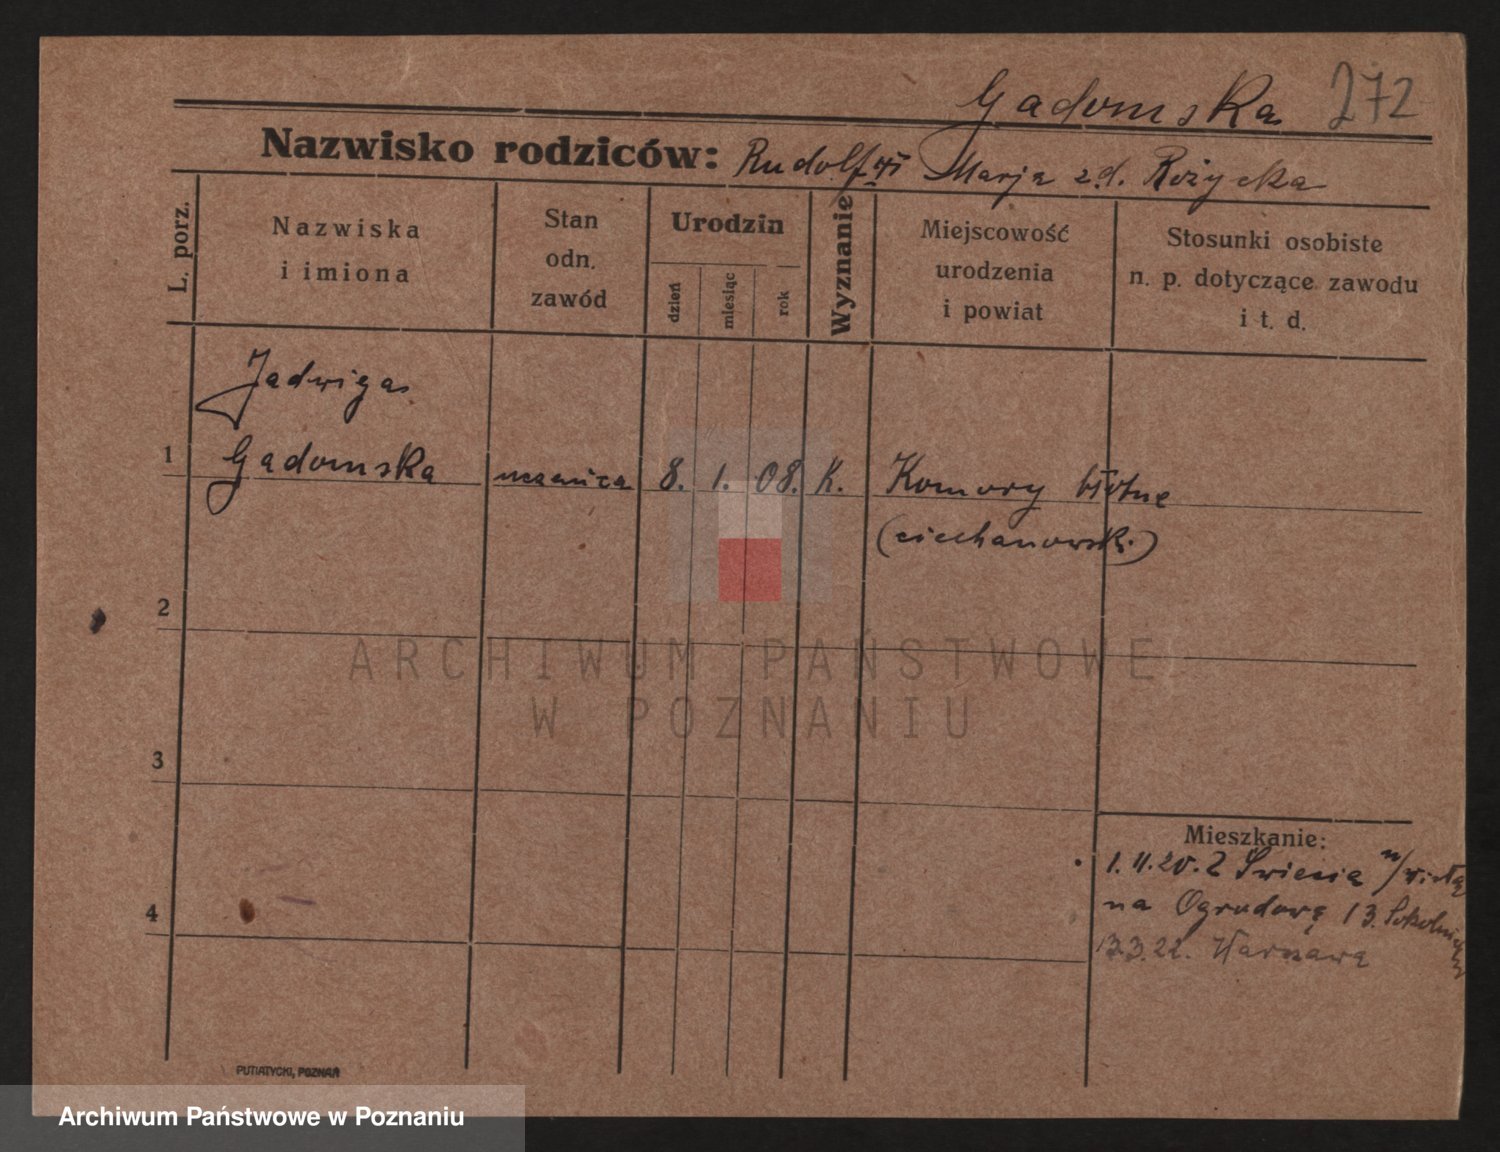 Gadomska 272
Nazwisko rodziców: Rudolf i Marja z.d. Różycka
L. porz.
Nazwiska i imiona
Stan odn. zawód
Urodzin
dzień
miesiąc
rok
Wyznanie
Miejscowość urodzenia i powiat
Stosunki osobiste n. p. dotyczące zawodu i t. d.
Jadwiga
1 Gadomska uczenica 8. 1. 08. K. Komory błotne
(ciechanowsk.)
2
ARCHIWUM PAŃSTWOWE
W POZNANIU
3
Mieszkanie:
1.11.20. Z Świecia n/Wisłą
4
na Ogrodową 13.
13.3.22. Warszawa
PUTIATYCKI, POZNAŃ
Archiwum Państwowe w Poznaniu